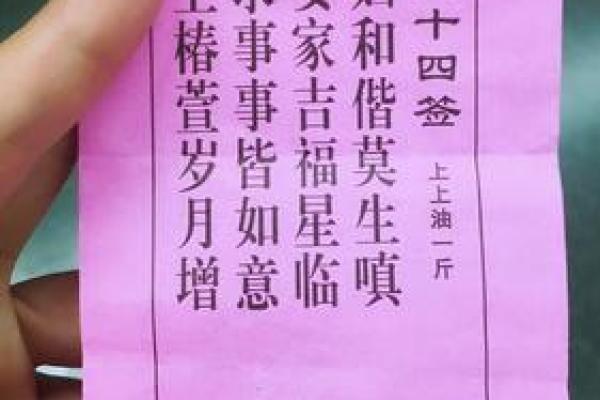 十四签
上上油一斤
和偕莫生嗔
家吉福星临
事事皆如意
椿萱岁月增